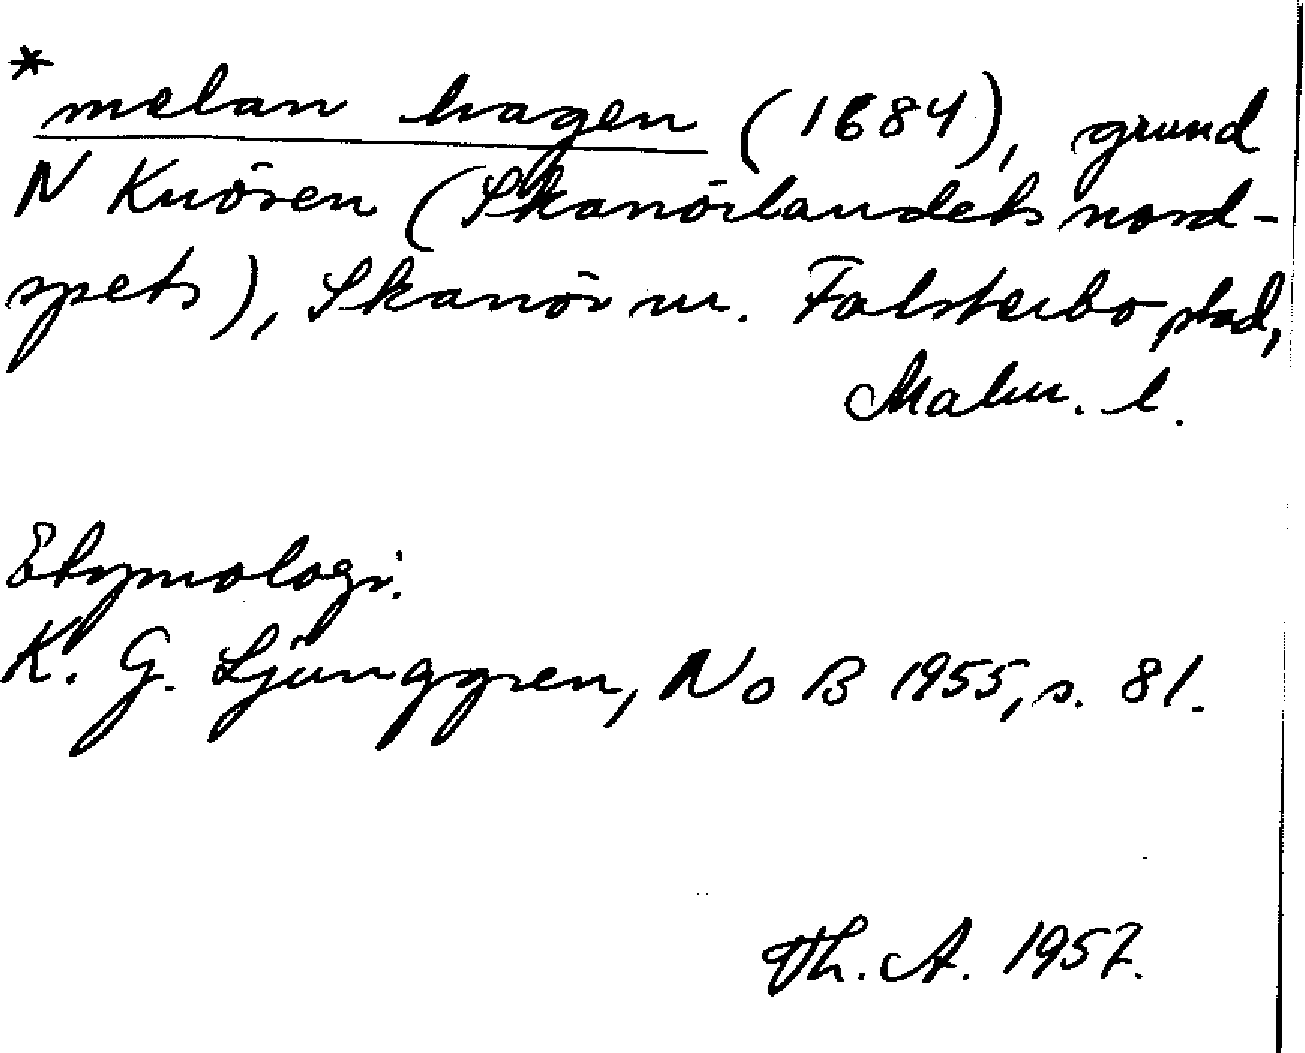 *
melan hagen (1684), grund
N Knösen (Skanörlandets nord-
spets), Skanör m. Falsterbo stad,
Malm. l.
Etymologi.
K. G. Ljunggren, NoB 1955, s. 81.
Th. A. 1957.